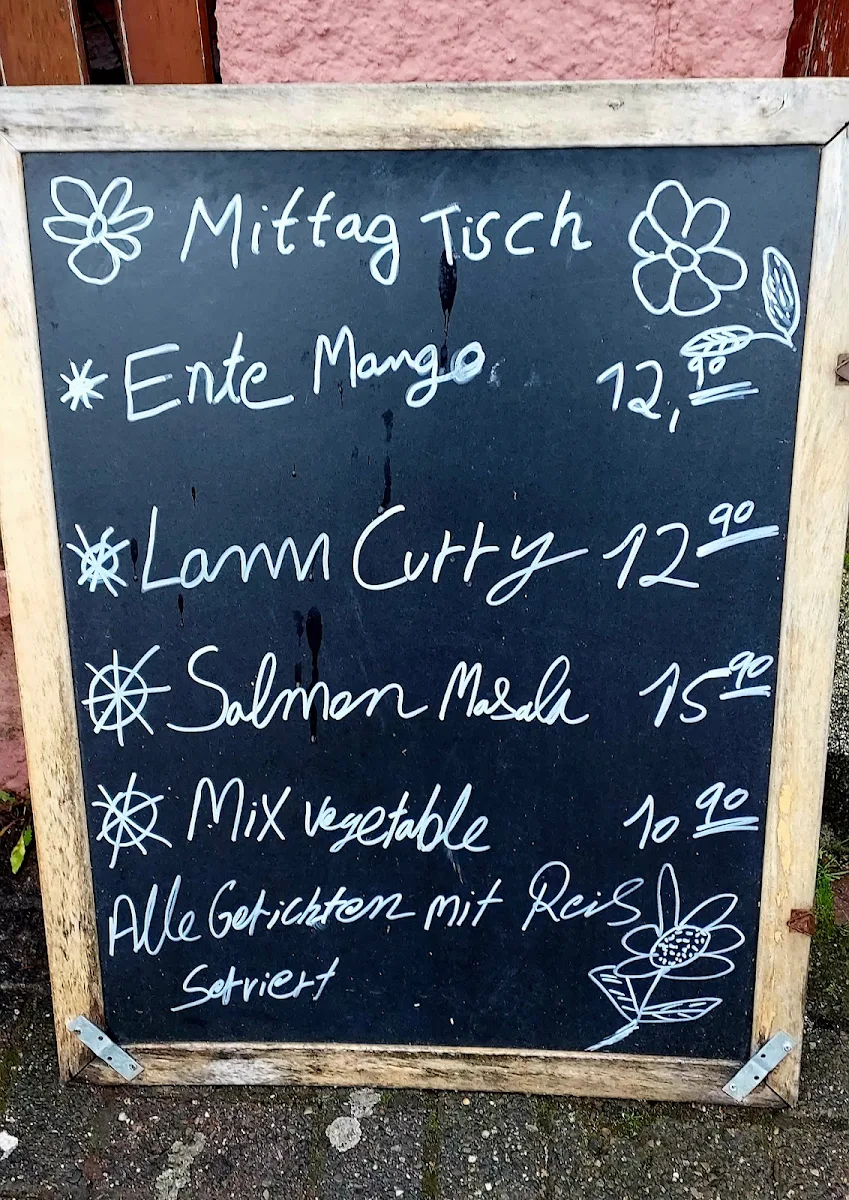 Mittag Tisch
Ente Mango 12,90
Lamm Curry 12 90
Salmon Masala 15 90
Mix vegetable 10 90
Alle Gerichten mit Reis
Serviert